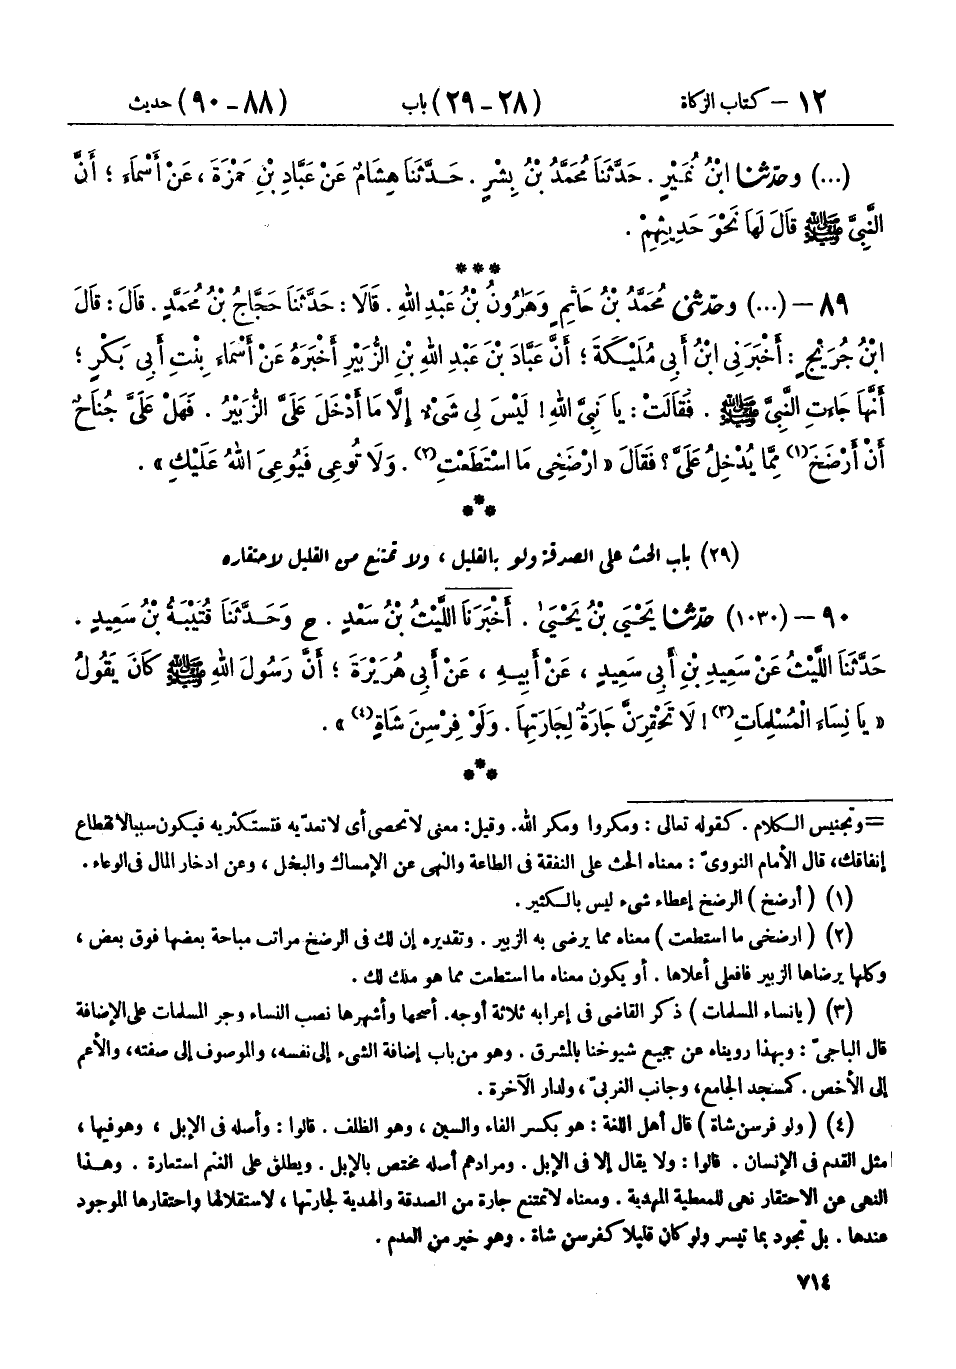 ١٢ – كتاب الزكاة (٢٨ – ٢٩) باب (٨٨ – ٩٠) حديث
(...) وحدّثنا ابْنُ نُمَيْرٍ . حَدَّثَنَا مُحَمَّدُ بْنُ بِشْرٍ . حَدَّثَنَا هِشَامٌ عَنْ عَبَّادِ بْنِ حَمْزَةَ ، عَنْ أَسْمَاءَ ؛ أَنَّ
النَّبِيَّ ﷺ قَالَ لَهَا نَحْوَ حَدِيثِهِمْ .
***
٨٩ – (...) وحدّثني مُحَمَّدُ بْنُ حَاتِمٍ وَهَارُونُ بْنُ عَبْدِ اللهِ . قَالَا : حَدَّثَنَا حَجَّاجُ بْنُ مُحَمَّدٍ . قَالَ : قَالَ
ابْنُ جُرَيْجٍ : أَخْبَرَنِي ابْنُ أَبِي مُلَيْكَةَ ؛ أَنَّ عَبَّادَ بْنَ عَبْدِ اللهِ بْنِ الزُّبَيْرِ أَخْبَرَهُ عَنْ أَسْمَاءَ بِنْتِ أَبِي بَكْرٍ ؛
أَنَّهَا جَاءَتِ النَّبِيَّ ﷺ . فَقَالَتْ : يَا نَبِيَّ اللهِ ! لَيْسَ لِي شَيْءٌ إِلَّا مَا أَدْخَلَ عَلَيَّ الزُّبَيْرُ . فَهَلْ عَلَيَّ جُنَاحٌ
أَنْ أَرْضَخَ(١) مِمَّا يُدْخِلُ عَلَيَّ ؟ فَقَالَ « ارْضَخِي مَا اسْتَطَعْتِ(٢) . وَلَا تُوعِي فَيُوعِيَ اللهُ عَلَيْكِ » .
***
(٢٩) باب الحث على الصدقة ولو بالقليل ، ولا تمتنع من القليل لاحتقاره
٩٠ – (١٠٣٠) حدّثنا يَحْيَى بْنُ يَحْيَىٰ . أَخْبَرَنَا اللَّيْثُ بْنُ سَعْدٍ . ح وَحَدَّثَنَا قُتَيْبَةُ بْنُ سَعِيدٍ .
حَدَّثَنَا اللَّيْثُ عَنْ سَعِيدِ بْنِ أَبِي سَعِيدٍ ، عَنْ أَبِيهِ ، عَنْ أَبِي هُرَيْرَةَ ؛ أَنَّ رَسُولَ اللهِ ﷺ كَانَ يَقُولُ
« يَا نِسَاءَ الْمُسْلِمَاتِ(٣) ! لَا تَحْقِرَنَّ جَارَةٌ لِجَارَتِهَا . وَلَوْ فِرْسِنَ شَاةٍ(٤) » .
***
=وتجنيس الكلام . كقوله تعالى : ومكروا ومكر الله. وقيل: معنى لاتحصى أى لاتعدّيه فتستكثريه فيكون سببالانقطاع
إنفاقك، قال الأمام النووىّ : معناه الحث على النفقة فى الطاعة والنهى عن الإمساك والبخل ، وعن ادخار المال فى الوعاء .
(١) ( أرضخ ) الرضخ إعطاء شىء ليس بالكثير .
(٢) ( ارضخى ما استطعت ) معناه مما يرضى به الزبير . وتقديره إن لك فى الرضخ مراتب مباحة بعضها فوق بعض ،
وكلها يرضاها الزبير فافعلى أعلاها . أو يكون معناه ما استطعت مما هو ملك لك .
(٣) ( يانساء المسلمات ) ذكر القاضى فى إعرابه ثلاثة أوجه. أصحها وأشهرها نصب النساء وجر المسلمات على الإضافة
قال الباجىّ : وبهذا رويناه عن جميع شيوخنا بالمشرق . وهو من باب إضافة الشىء إلى نفسه، والموصوف إلى صفته، والأعم
إلى الأخص . كمسجد الجامع، وجانب الغربىّ ، ولدار الآخرة .
(٤) ( ولو فرسن شاة ) قال أهل اللغة : هو بكسر الفاء والسين ، وهو الظلف . قالوا : وأصله فى الإبل ، وهو فيها ،
مثل القدم فى الإنسان . قالوا : ولا يقال إلا فى الإبل . ومرادهم أصله مختص بالإبل . ويطلق على الغنم استعارة . وهذا
النهى عن الاحتقار نهى للمعطية المهدية . ومعناه لاتمتنع جارة من الصدقة والهدية لجارتها ، لاستقلالها واحتقارها الموجود
عندها . بل تجود بما تيسر ولو كان قليلا كفرسن شاة . وهو خير من العدم .
٧١٤